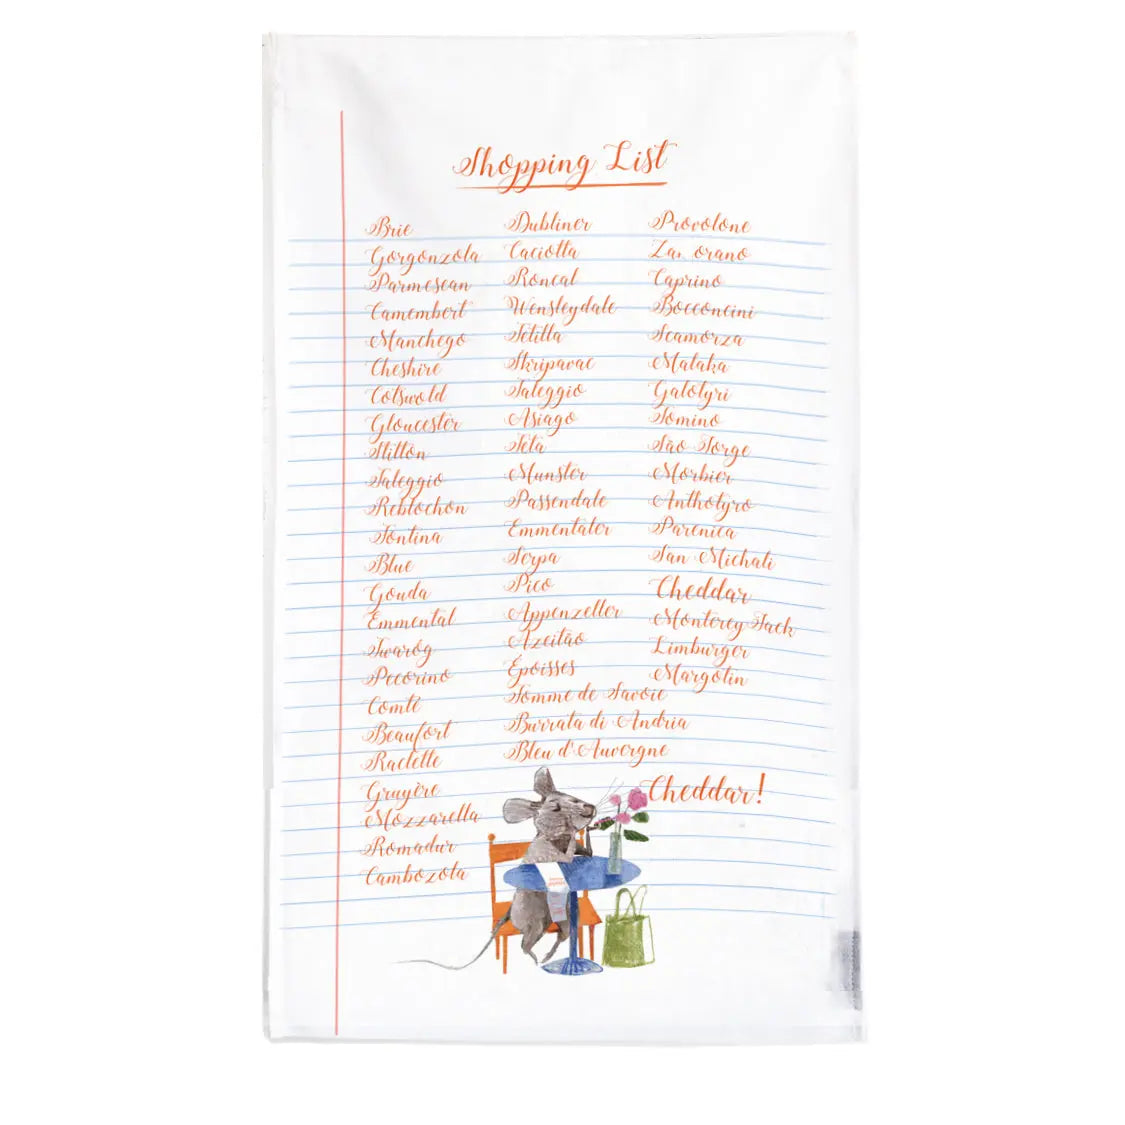 Shopping List
Brie
Gorgonzola
Parmesean
Camembert
Manchego
Cheshire
Cotswold
Gloucester
Stilton
Taleggio
Reblochon
Fontina
Blue
Gouda
Emmental
Twaróg
Pecorino
Comté
Beaufort
Raclette
Gruyère
Mozzarella
Romadur
Cambozola
Dubliner
Caciotta
Roncal
Wensleydale
Tetilla
Škripavac
Taleggio
Asiago
Feta
Munster
Passendale
Emmentaler
Serpa
Pico
Appenzeller
Azeitão
Époisses
Tomme de Savoie
Burrata di Andria
Bleu d'Auvergne
Provolone
Caprino
Bocconcini
Scamorza
Galotyri
Tomino
São Jorge
Morbier
Anthotyro
Parenica
San Michali
Cheddar
Monterey Jack
Limburger
Margotin
Cheddar!